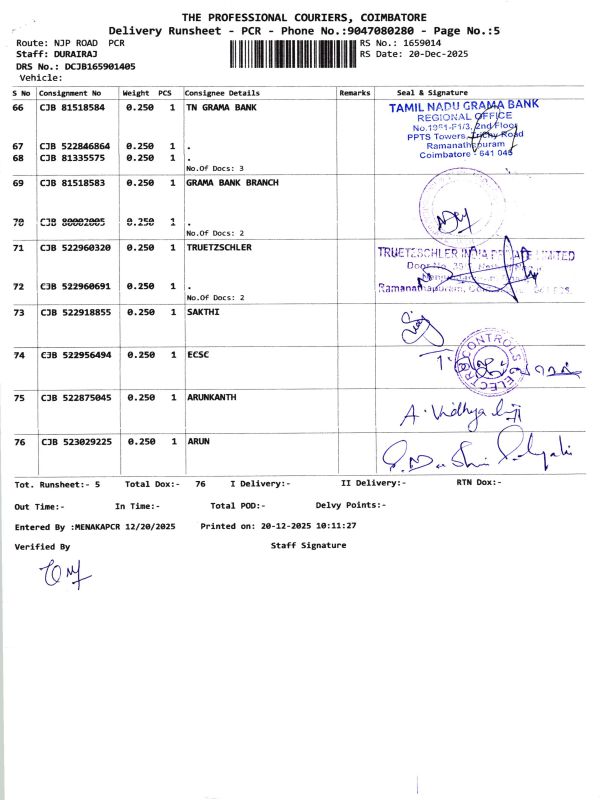 THE PROFESSIONAL COURIERS, COIMBATORE
Delivery Runsheet - PCR - Phone No.:9047080280 - Page No.:5
Route: NJP ROAD PCR RS No.: 1659014
Staff: DURAIRAJ RS Date: 20-Dec-2025
DRS No.: DCJB165901405
Vehicle:
S No Consignment No Weight PCS Consignee Details Remarks Seal & Signature
66 CJB 81518584 0.250 1 TN GRAMA BANK
TAMIL NADU GRAMA BANK
REGIONAL OFFICE
No.1351-F1/3, 2nd Floor
PPTS Towers, Trichy Road
Ramanathapuram
Coimbatore - 641 045
67 CJB 522846864 0.250 1 .
68 CJB 81335575 0.250 1 .
No.Of Docs: 3
69 CJB 81518583 0.250 1 GRAMA BANK BRANCH
70 CJB 80002005 0.250 1 .
No.Of Docs: 2
71 CJB 522960320 0.250 1 TRUETZSCHLER
TRUETZSCHLER INDIA PRIVATE LIMITED
Ramanathapuram,
72 CJB 522960691 0.250 1 .
No.Of Docs: 2
73 CJB 522918855 0.250 1 SAKTHI
74 CJB 522956494 0.250 1 ECSC
CONTROLS
ELECTRO
75 CJB 522875045 0.250 1 ARUNKANTH
A. Vidhya
76 CJB 523029225 0.250 1 ARUN
Tot. Runsheet:- 5 Total Dox:- 76 I Delivery:- II Delivery:- RTN Dox:-
Out Time:- In Time:- Total POD:- Delvy Points:-
Entered By :MENAKAPCR 12/20/2025 Printed on: 20-12-2025 10:11:27
Verified By Staff Signature